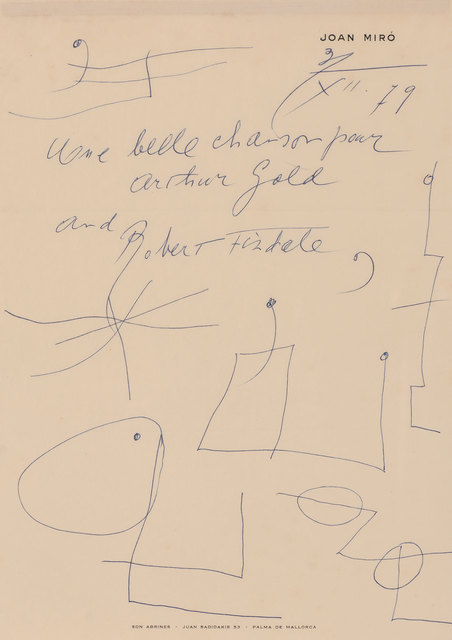 JOAN MIRÓ
3/XII.79
Une belle chanson pour
arthur Gold
and
Robert Fizdale
SON ABRINES - JUAN SARIDAKIS 53 - PALMA DE MALLORCA